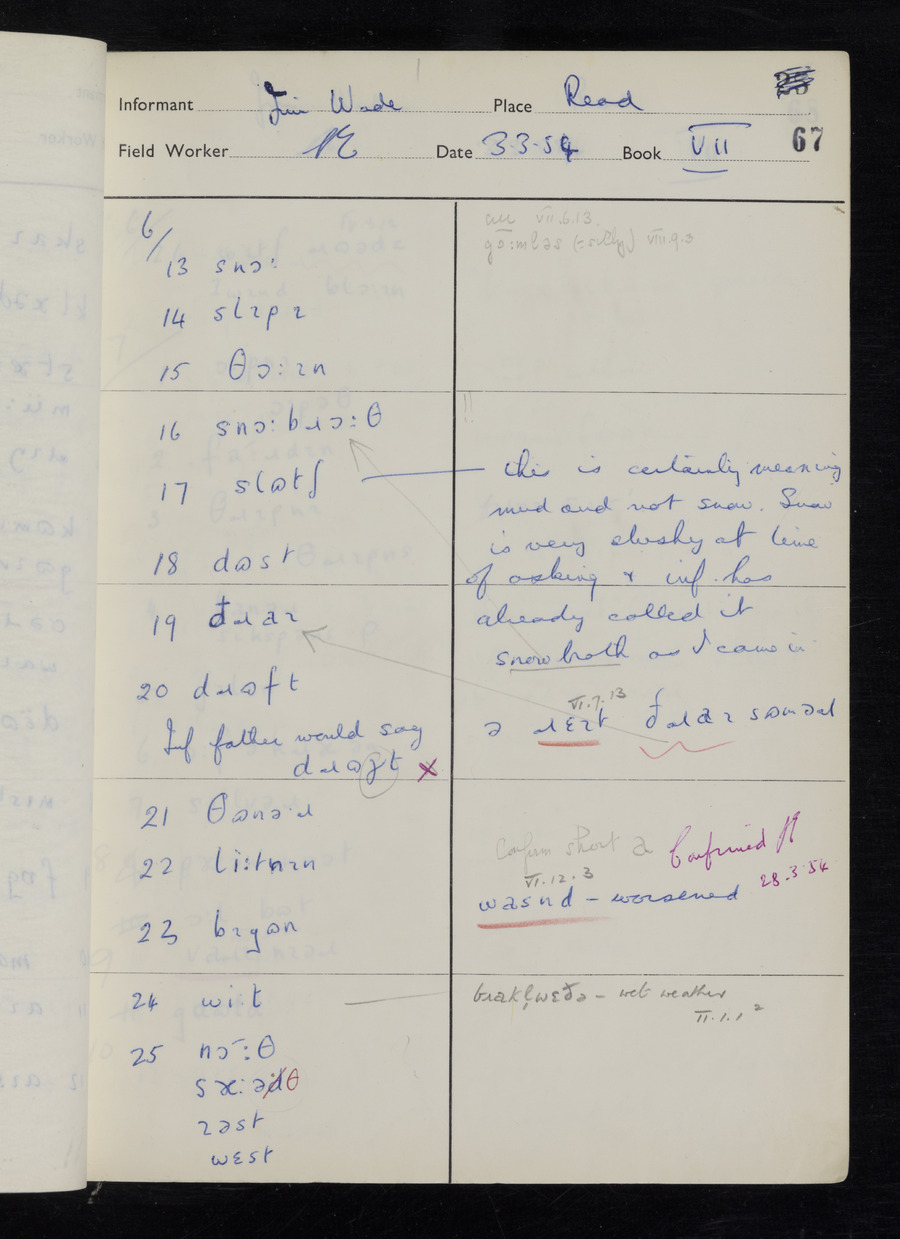 Informant Jim Wade Place Read
67
Field Worker Date 3-3-54 Book VII
6/
13 snɔː
14 slɪpɪ
15 θɔːɪn
16 snɔːbɹɔːθ
17 slɷtʃ
18 dɷst
19 đɹaɪ
20 dɹɷft
Inf father would say
dɹɷft x
21 θɷnəˑɹ
22 liːtnɪn
23 bɪgɷn
24 wit
25 nɔ̄ːθ
ɪəst
wɛst
VII.6.13
gɔ̄ːmləs (=silly) VIII.9.3
!!
this is certainly meaning
mud and not snow. Snow
is very slushy at time
of asking & inf. has
already called it
snow broth as I came in
VI.7.13
Confirm short ə Confirmed
28.3.54
VI.12.3
wəsnd – worsened
– wet weather